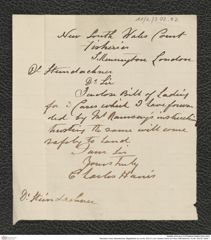 New South Wales Court
Fisheries
S. Kensington London
Dr Steindachner
Dr Sir
Enclose Bill of Lading
for 3 Cases which I have forwar
ded by Mr Ramsay's instruction
trusting the same will come
safely to hand
I am Sir
Yours truly
Charles Harris
Dr Steindachner